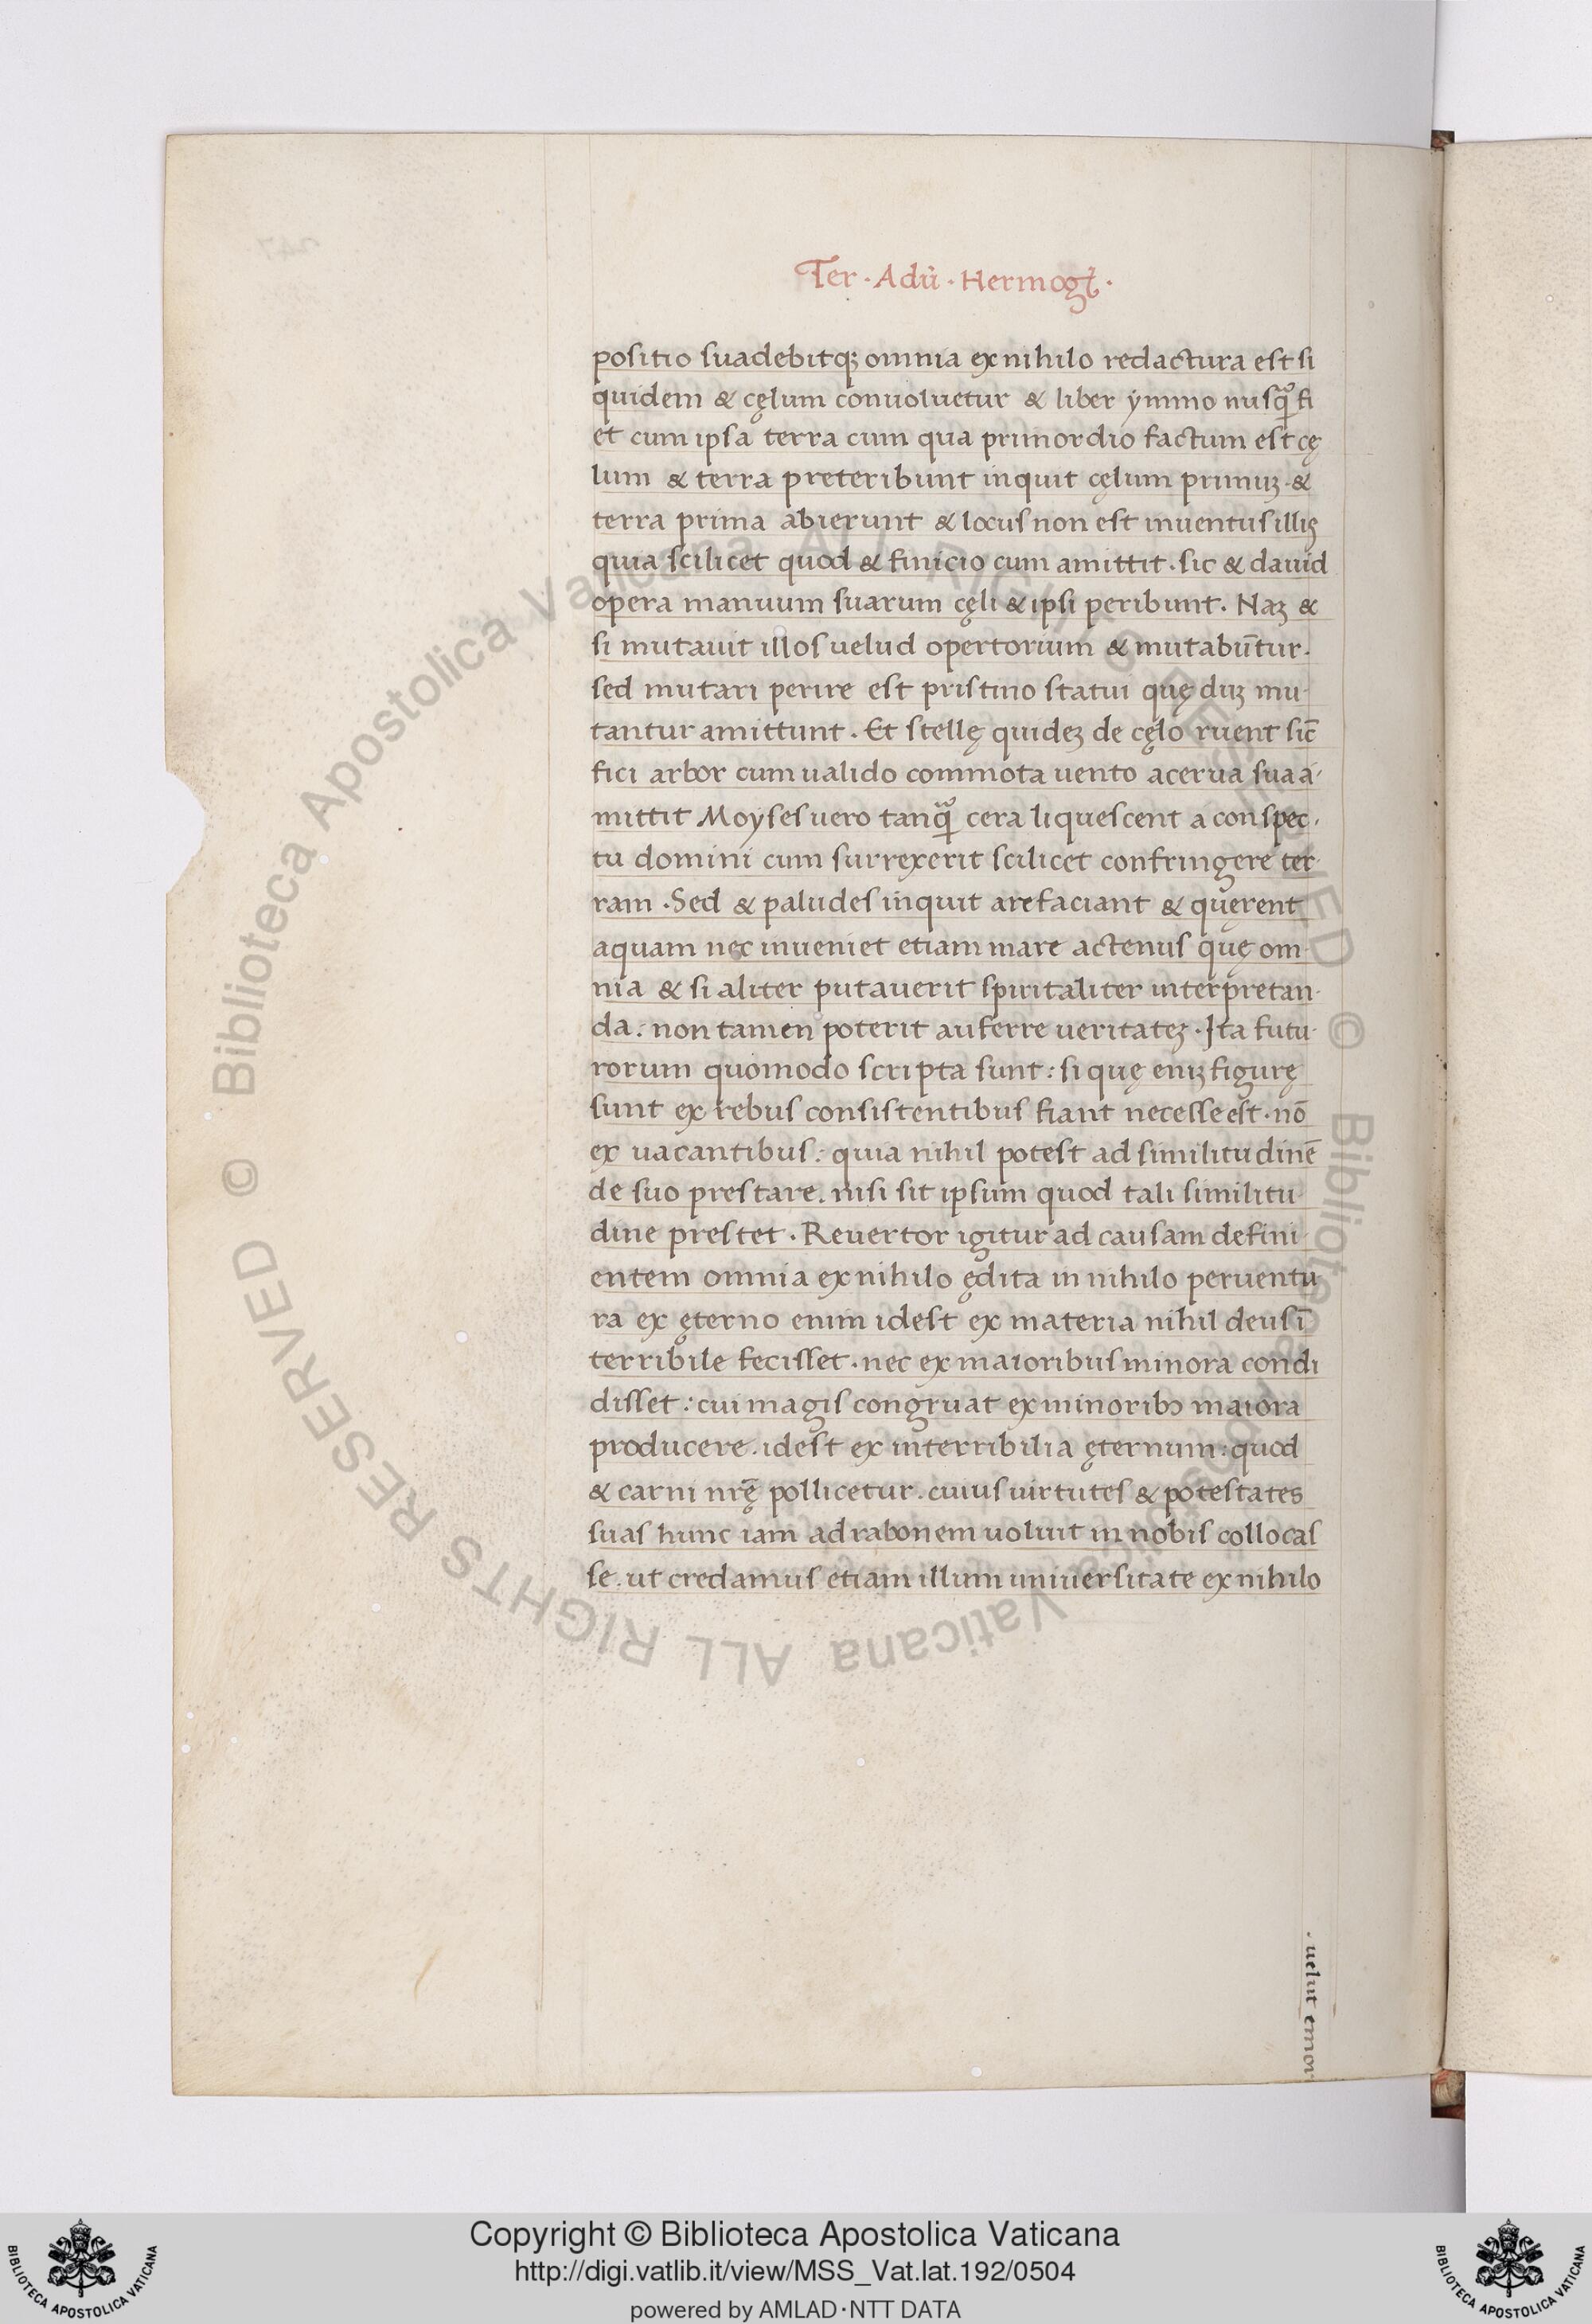 Ter · Adu᷉ · Hermogē ·
positio suadebitq; omnia ex nihilo redactura est si
quidem & cęlum conuoluetur & liber ymmo nusq̃ fi
et cum ipsa terra cum qua primordio factum est cę
lum & terra preteribunt inquit cęlum primuꝫ · &
terra prima abierunt & locus non est inuentus illis
quia scilicet quod & finicio cum amittit · sic & dauid
opera manuum suarum cęli & ipsi peribunt · Naꝫ &
si mutauit illos uelud opertorium & mutabūtur ·
sed mutari perire est pristino statui quę duꝫ mu-
tantur amittunt · Et stellę quideꝫ de cęlo ruent sic̄
fici arbor cum ualido commota uento acerua sua a-
mittit Moyses uero tanq̃ cera liquescent a conspec-
tu domini cum surrexerit scilicet confringere ter-
ram · Sed & paludes inquit arefaciant & quęrent
aquam nec inueniet etiam mare actenus quę om-
nia & si aliter putauerit spiritaliter interpretan-
da : non tamen poterit auferre ueritateꝫ · Ita futu-
rorum quomodo scripta sunt : si quę eniꝫ figurę
sunt ex rebus consistentibus fiant necesse est · nō
ex uacantibus : quia nihil potest ad similitudinē
de suo prestare . nisi sit ipsum quod tali similitu-
dine prestet · Reuertor igitur ad causam defini-
entem omnia ex nihilo ędita in nihilo peruentu
ra ex ęterno enim idest ex materia nihil deus ī
terribile fecisset · nec ex maioribus minora condi
disset : cui magis congruat ex minoribꝫ maiora
producere . idest ex interribilia ęternum : quod
& carni nr̄ę pollicetur . cuius uirtutes & potestates
suas hunc iam ad rabonem uoluit in nobis collocas
se . ut credamus etiam illum uniuersitate ex nihilo
· uelut emor
Copyright © Biblioteca Apostolica Vaticana
http://digi.vatlib.it/view/MSS_Vat.lat.192/0504
powered by AMLAD·NTT DATA
BIBLIOTECA APOSTOLICA VATICANA
BIBLIOTECA APOSTOLICA VATICANA
© Biblioteca Apostolica Vaticana ALL RIGHTS RESERVED © Biblioteca Apostolica Vaticana ALL RIGHTS RESERVED